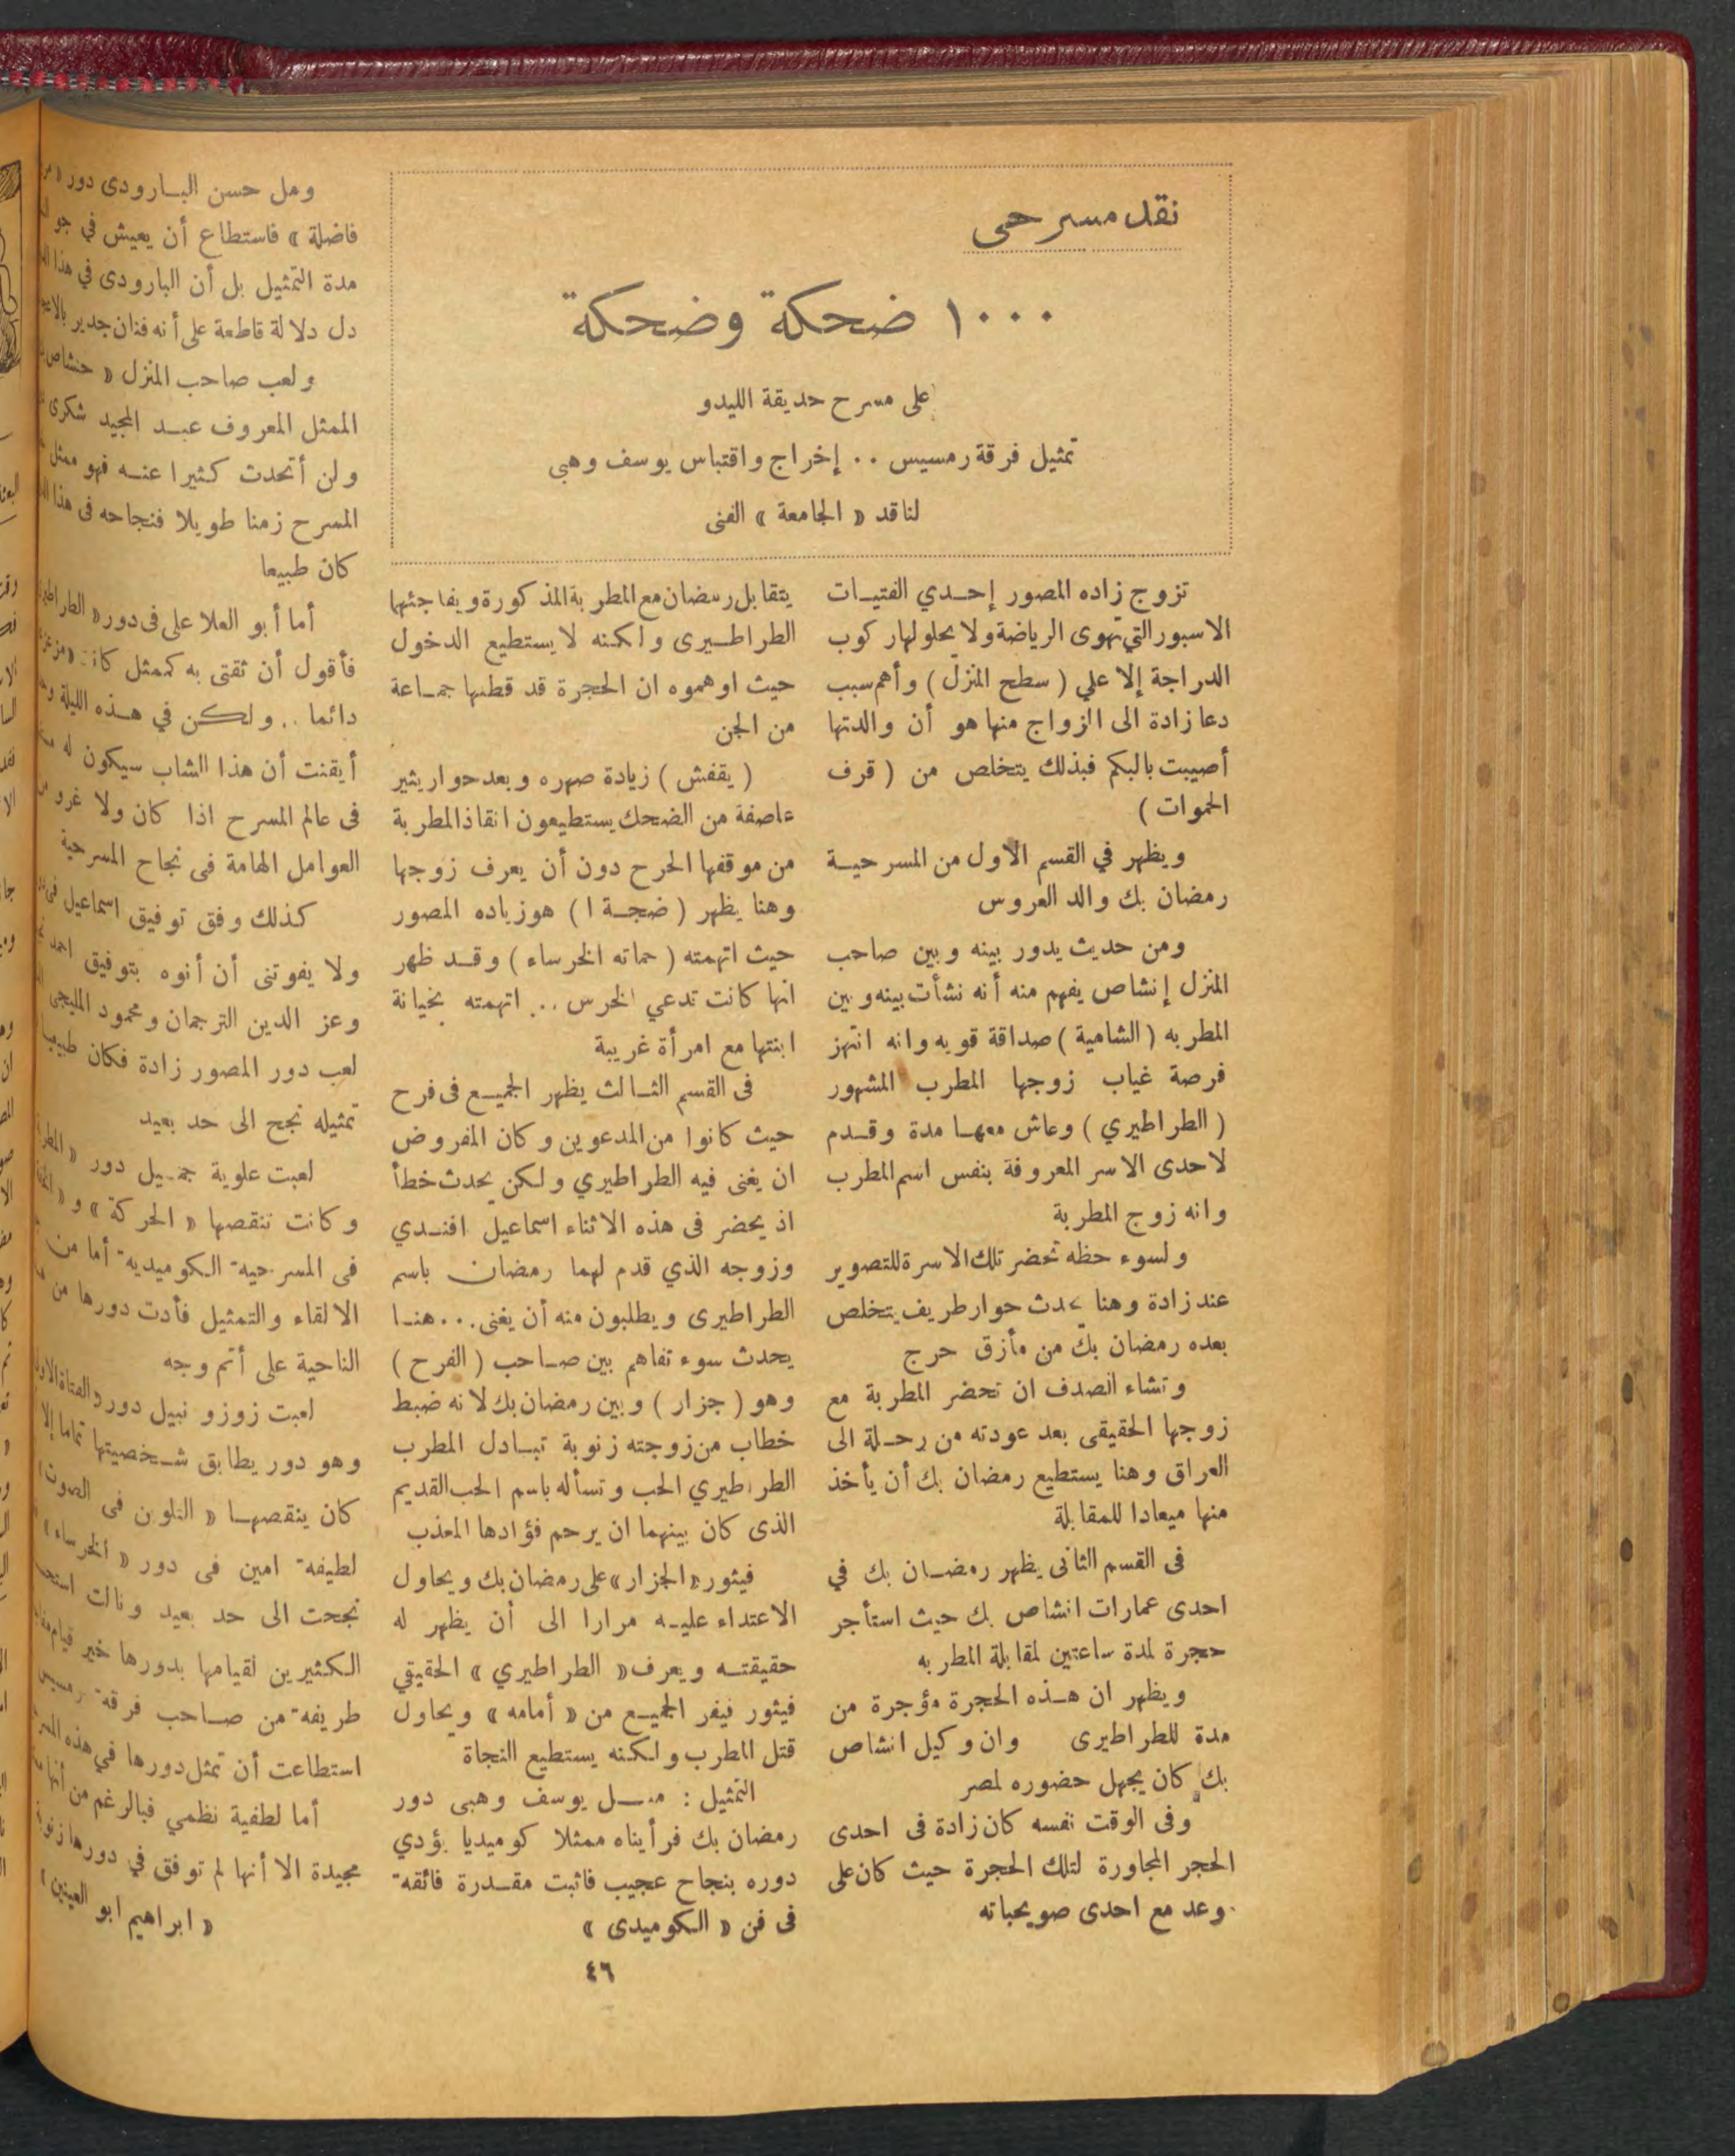 نقد مسرحى
١٠٠٠ ضحكة وضحكة
على مسرح حديقة الليدو
تمثيل فرقة رمسيس .. إخراج واقتباس يوسف وهبى
لناقد « الجامعة » الفنى
تزوج زاده المصور إحدي الفتيات
الاسبور التي تهوى الرياضة ولا يحلو لها ركوب
الدراجة إلا علي ( سطح المنزل ) وأهم سبب
دعا زادة الى الزواج منها هو أن والدتها
أصيبت بالبكم فبذلك يتخلص من ( قرف
الحموات )
ويظهر في القسم الأول من المسرحية
رمضان بك والد العروس
ومن حديث يدور بينه وبين صاحب
المنزل إنشاص يفهم منه أنه نشأت بينه وبين
المطربه ( الشامية ) صداقة قويه وانه انتهز
فرصة غياب زوجها المطرب المشهور
( الطراطيري ) وعاش معها مدة وقدم
لاحدى الاسر المعروفة بنفس اسم المطرب
وانه زوج المطربة
ولسوء حظه تحضر تلك الاسرة للتصوير
عند زادة وهنا يحدث حوار طريف يتخلص
بعده رمضان بك من مأزق حرج
وتشاء الصدف ان تحضر المطربة مع
زوجها الحقيقى بعد عودته من رحلة الى
العراق وهنا يستطيع رمضان بك أن يأخذ
منها ميعادا للمقابلة
فى القسم الثانى يظهر رمضان بك في
احدى عمارات انشاص بك حيث استأجر
حجرة لمدة ساعتين لمقابلة المطربه
ويظهر ان هذه الحجرة مؤجرة من
مدة للطراطيرى وان وكيل انشاص
بك كان يجهل حضوره لمصر
وفى الوقت نفسه كان زادة فى احدى
الحجر المجاورة لتلك الحجرة حيث كان على
وعد مع احدى صويحباته
يتقابل رمضان مع المطربة المذكورة ويفاجئهما
الطراطيرى ولكنه لا يستطيع الدخول
حيث اوهموه ان الحجرة قد قطنها جماعة
من الجن
( يقفش ) زيادة صهره وبعد حوار يثير
عاصفة من الضحك يستطيعون انقاذ المطربة
من موقفها الحرح دون أن يعرف زوجها
وهنا يظهر ( ضجة ا ) هو زياده المصور
حيث اتهمته ( حماته الخرساء ) وقد ظهر
انها كانت تدعي الخرس .. اتهمته بخيانة
ابنتها مع امرأة غريبة
فى القسم الثالث يظهر الجميع فى فرح
حيث كانوا من المدعوين وكان المفروض
ان يغنى فيه الطراطيري ولكن يحدث خطأ
اذ يحضر فى هذه الاثناء اسماعيل افندي
وزوجه الذي قدم لهما رمضان باسم
الطراطيرى ويطلبون منه أن يغنى ... هنا
يحدث سوء تفاهم بين صاحب ( الفرح )
وهو ( جزار ) وبين رمضان بك لانه ضبط
خطاب من زوجته زنوبة تبادل المطرب
الطراطيري الحب وتسأله باسم الحب القديم
الذى كان بينهما ان يرحم فؤادها المعذب
فيثور « الجزار » على رمضان بك ويحاول
الاعتداء عليه مرارا الى أن يظهر له
حقيقته ويعرف « الطراطيري » الحقيقي
فيثور فيفر الجميع من « أمامه » ويحاول
قتل المطرب ولكنه يستطيع النجاة
التمثيل : مثل يوسف وهبى دور
رمضان بك فرأيناه ممثلا كوميديا يؤدي
دوره بنجاح عجيب فاثبت مقدرة فائقة
فى فن « الكوميدى »
ومل حسن البارودى دور
فاضلة » فاستطاع أن يعيش في جو
مدة التمثيل بل أن البارودى في هذا
دل دلالة قاطعة على أنه فنان جدير
ولعب صاحب المنزل « حنشاص
الممثل المعروف عبد المجيد شكرى
ولن أتحدث كثيرا عنه فهو ممثل
المسرح زمنا طويلا فنجاحه فى هذا
كان طبيعا
أما أبو العلا على فى دور «
فأقول أن ثقتى به كممثل كانت
دائما .. ولكن في هذه الليلة
أيقنت أن هذا الشاب سيكون له
فى عالم المسرح اذا كان ولا غرو
العوامل الهامة فى نجاح المسرحية
كذلك وفق توفيق اسماعيل
ولا يفوتنى أن أنوه بتوفيق احمد
وعز الدين الترجمان ومحمود المليجى
لعب دور المصور زادة فكان
تمثيله نجح الى حد بعيد
لعبت علوية جميل دور «
وكانت تنقصها « الحركة » و «
فى المسرحية الكوميدية أما من
الالقاء والتمثيل فأدت دورها من
الناحية على أتم وجه
لعبت زوزو نبيل دور «
وهو دور يطابق شخصيتها تماما إلا
كان ينقصها « التلوين فى الصوت
لطيفة امين فى دور « الخرساء »
نجحت الى حد بعيد ونالت
الكثيرين لقيامها بدورها خير قيام
طريفة من صاحب فرقة رمسيس
استطاعت أن تمثل دورها في هذه
أما لطفية نظمي فبالرغم من أنها
مجيدة الا أنها لم توفق في دورها
« ابراهيم ابو العينين »
٤٦